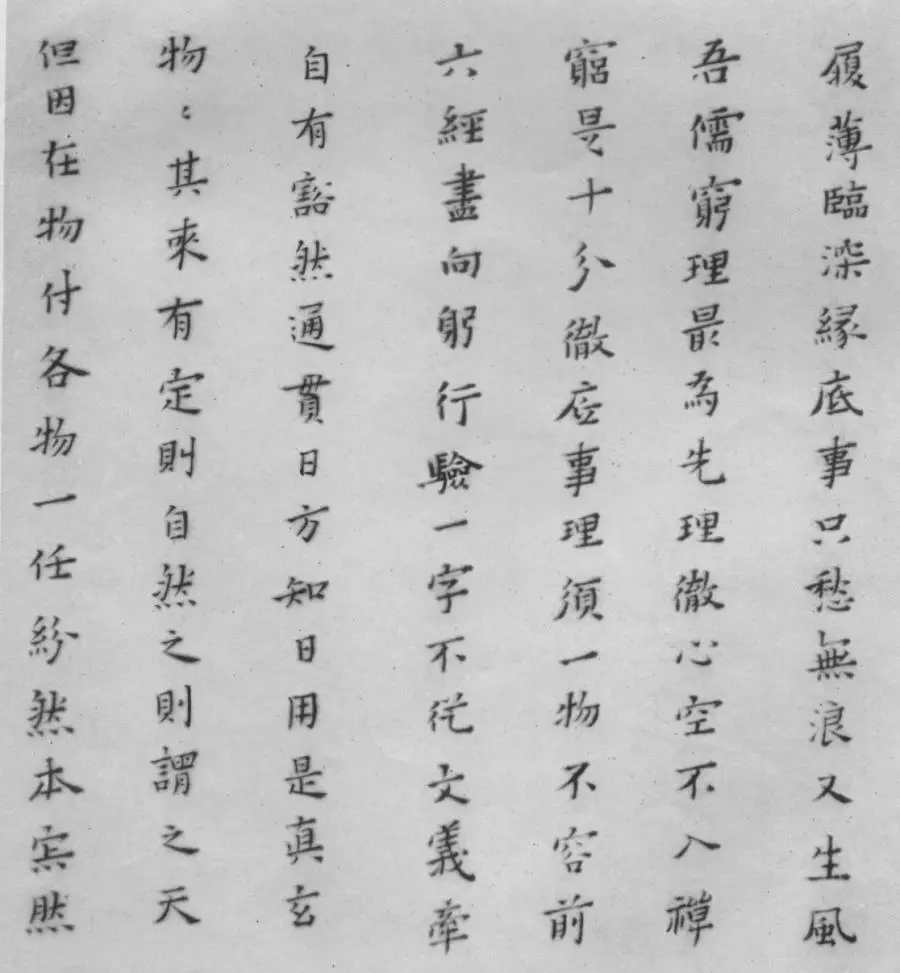 履薄臨深緣底事只愁無浪又生風
吾儒窮理最為先理徹心空不入禪
窮是十分徹底事理須一物不容前
六經盡向躬行驗一字不從文義牽
自有豁然通貫日方知日用是真玄
物〻其來有定則自然之則謂之天
但因在物付各物一任紛然本寂然